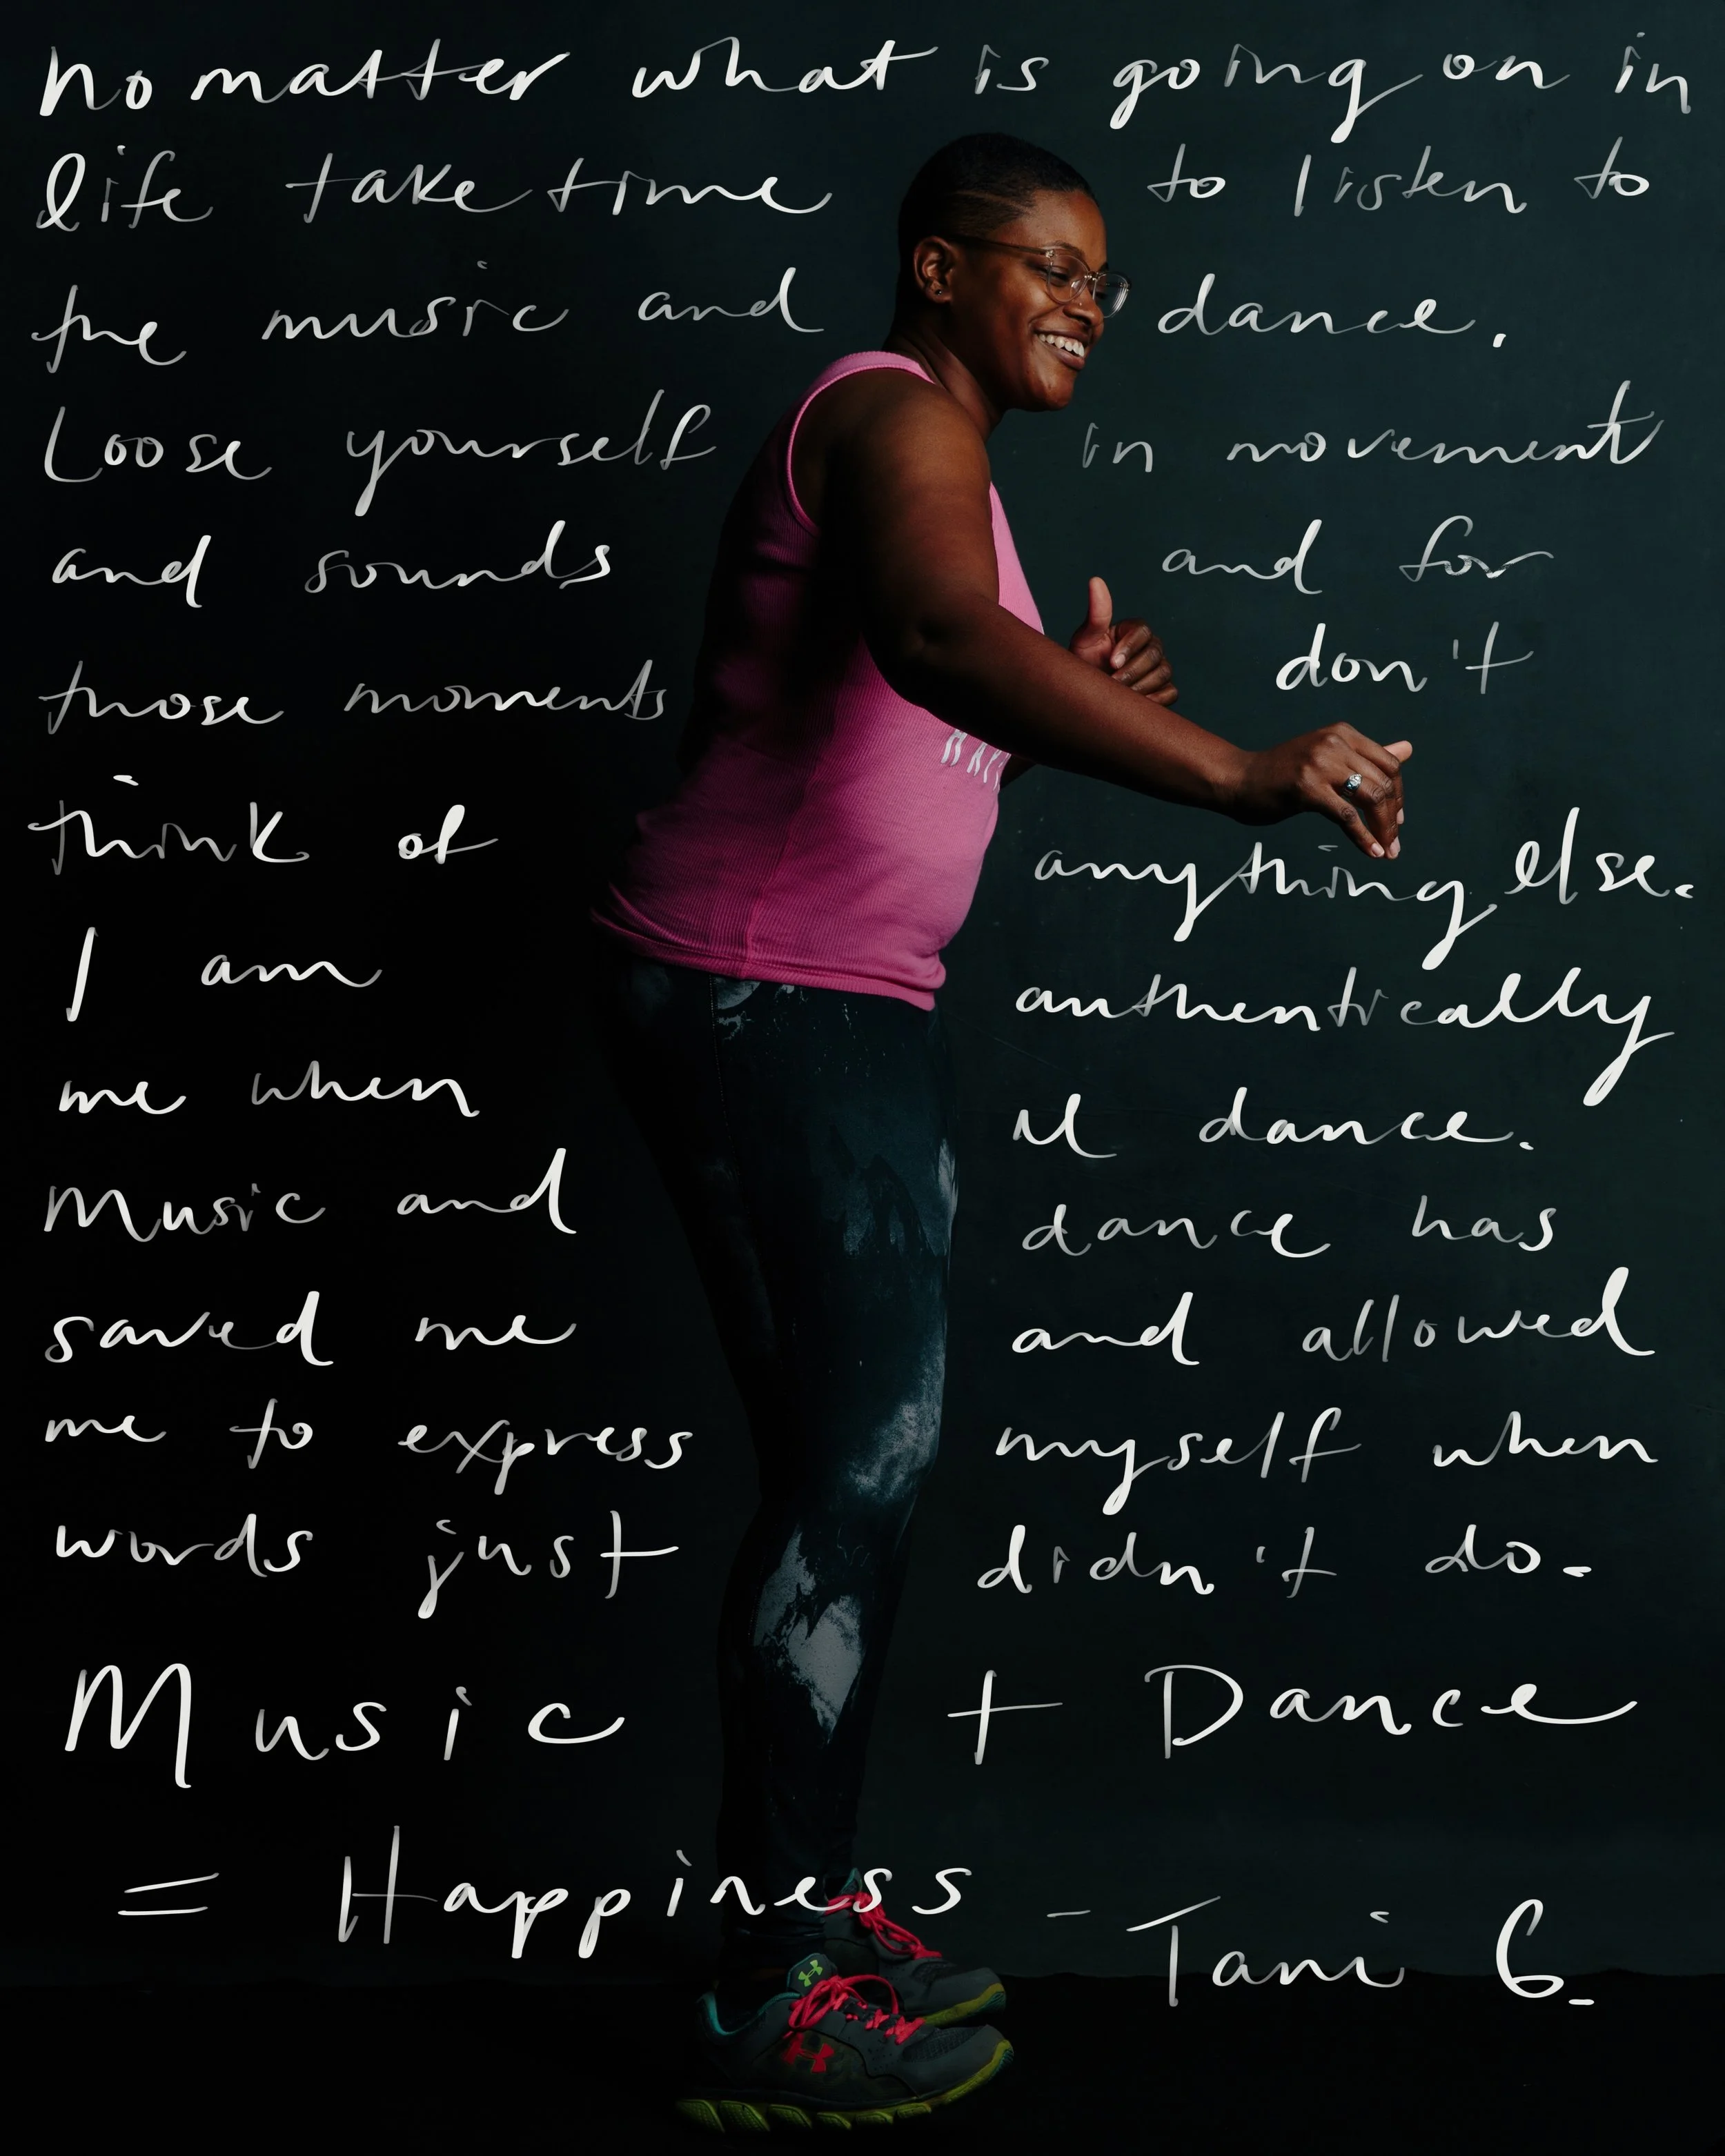 no matter what is going on in
life take time to listen to
the music and dance.
Loose yourself in movement
and sounds and for
those moments don't
think of anything else.
I am authentically
me when I dance.
Music and dance has
saved me and allowed
me to express myself when
words just didn't do.
Music + Dance
= Happiness - Tani G.